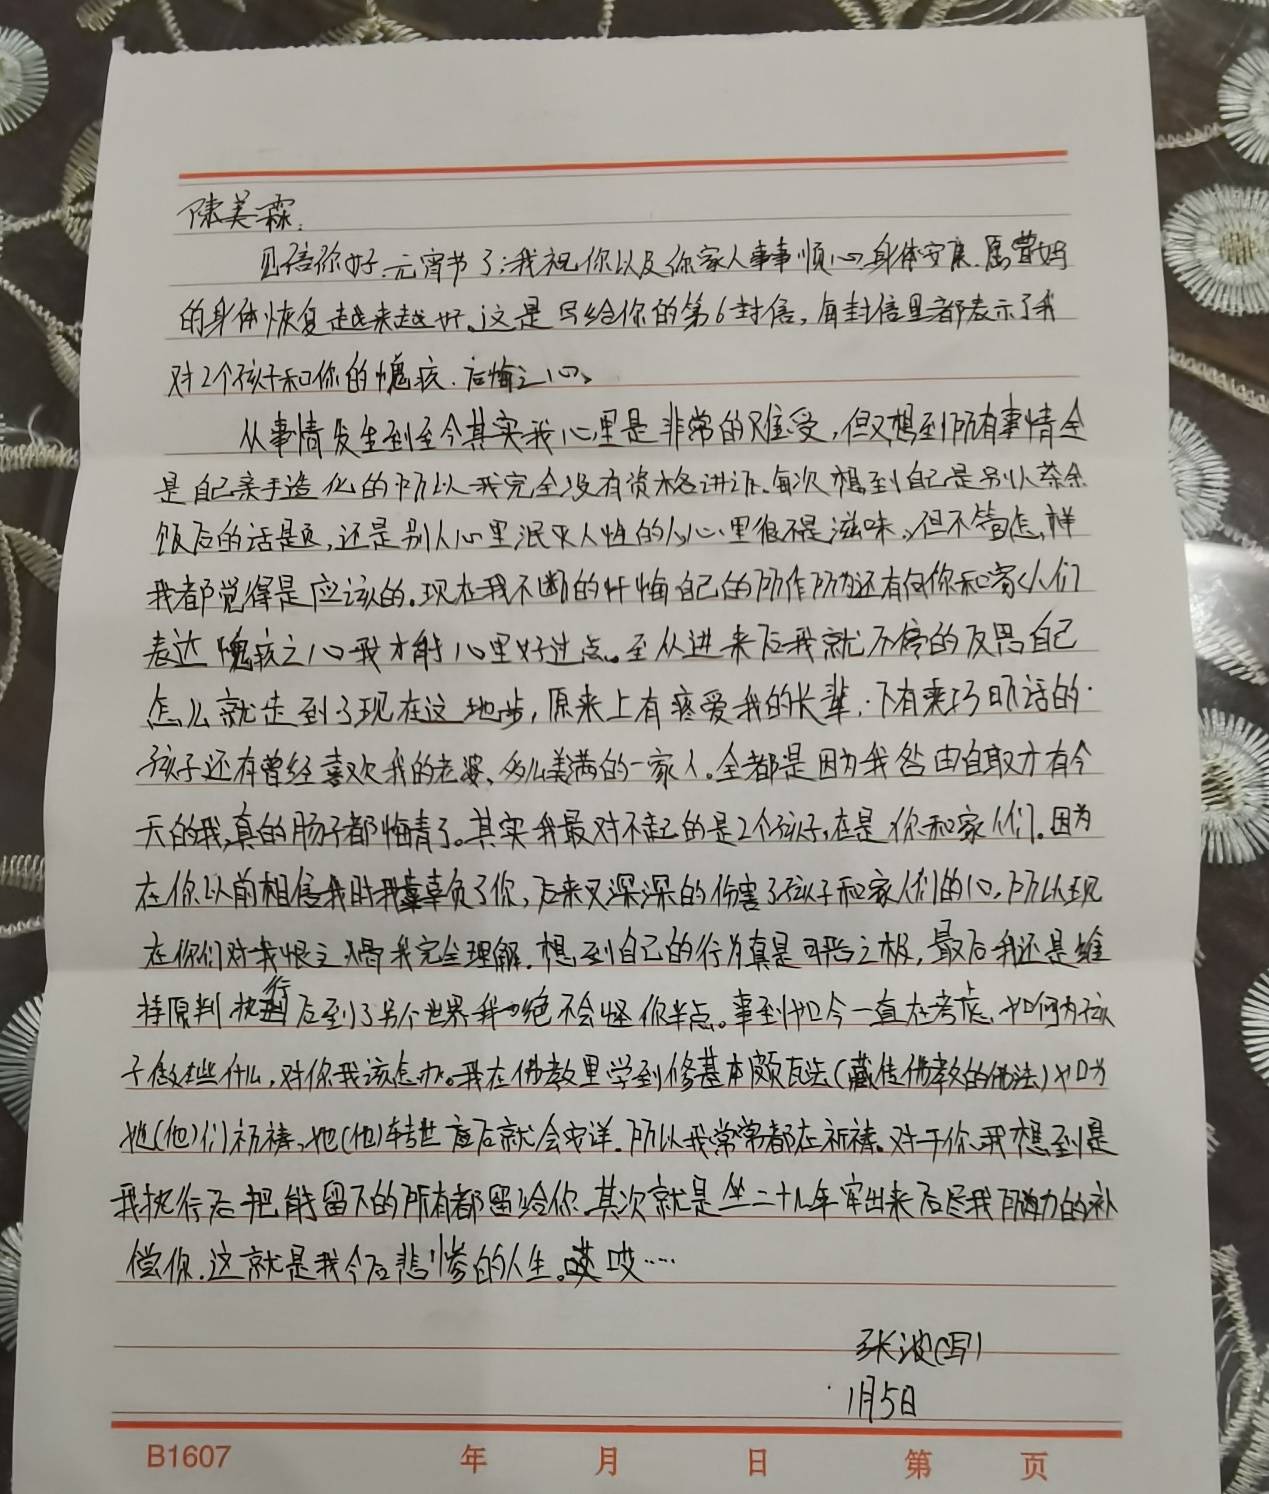 陈美霖:
见信你好.元宵节了;我祝你以及你家人事事顺心.身体安康.愿曾妈
的身体恢复越来越好。这是写给你的第6封信,每封信里都表示了我
对2个孩子和你的愧疚.后悔之心。
从事情发生到至今其实我心里是非常的难受,但又想到所有事情全
是自己亲手造化的所以我完全没有资格讲诉.每次想到自己是别人茶余
饭后的话是页,还是别人心里泯灭人性的人心里很不是滋味。但不管怎样
我都觉得是应该的.现在我不断的忏悔自己的所作所为还有向你和家人们
表达愧疚之心我才能心里好过点。至从进来后我就不停的反思自己
怎么就走到了现在这地步,原来上有疼爱我的长辈.下有乖巧听话的
孩子还有曾经喜欢我的老婆.多么美满的一家人。全都是因为我咎由自取才有今
天的我,真的肠子都悔青了。其实我最对不起的是2个孩子,在是你和家人们.因为
在你以前相信我时我辜负了你,后来又深深的伤害了孩子和家人们的心.所以现
在你们对我恨之入骨我完全理解.想到自己的行为真是可恶之极,最后我还是维
持原判执行后到了另个世界我也绝不会怪你半点。事到如今一直在考虑.如何为孩
子做些什么,对你我该怎办。我在佛教里学到修基本颇瓦法(藏传佛教的佛法)如为
她(他)们祈祷,她(他)转世 后就会安详.所以我常常都在祈祷.对于你我想到是
我执行后把能留下的所有都留给你.其次就是坐二十几年牢出来后尽我所能力的补
偿你.这就是我今后悲惨的人生。哎哎……
张波(写)
1月5日
B1607 年 月 日 第 页